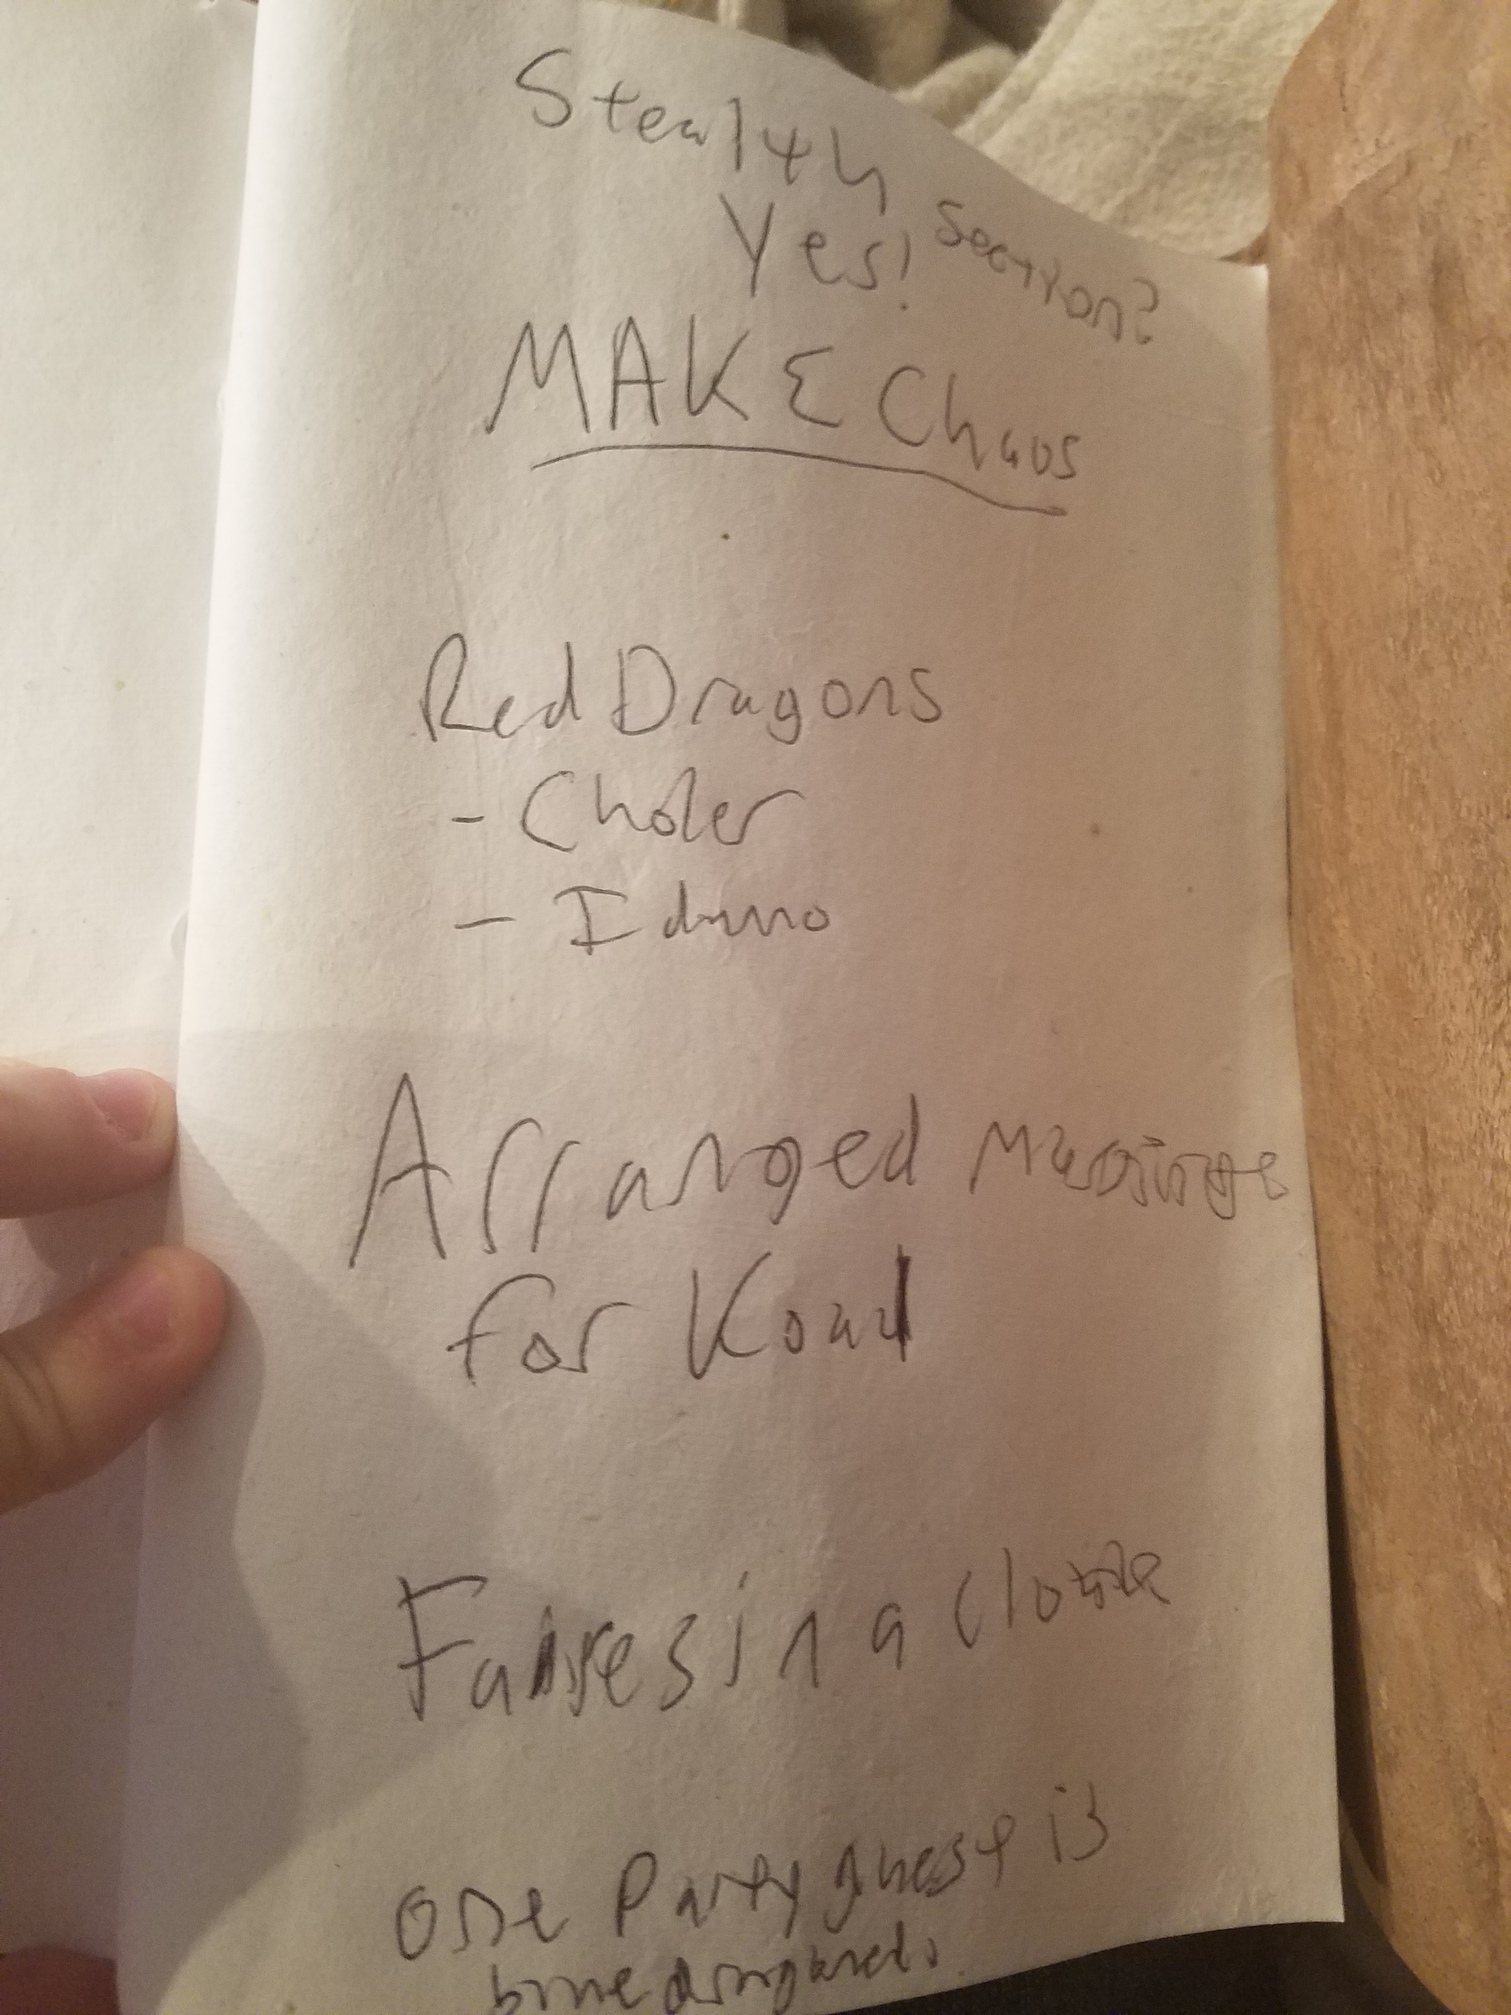 Stealth Section?
Yes!
MAKE Chaos
Red Dragons
- Choler
-
Arranged Marriage
for
Fairies in a
One Party guest is